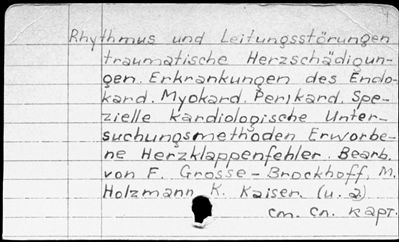 Rhythmus und Leitungsstörungen
traumatische Herzschädigun-
gen. Erkrankungen des Endo-
kard. Myokard. Perikard. Spe-
zielle kardiologische Unter-
suchungsmethoden Erworbe-
ne Herzklappenfehler. Bearb.
von F. Grosse-Brockhoff, M.
Holzmann, K. Kaiser. (u. a)
см. сл. карт.